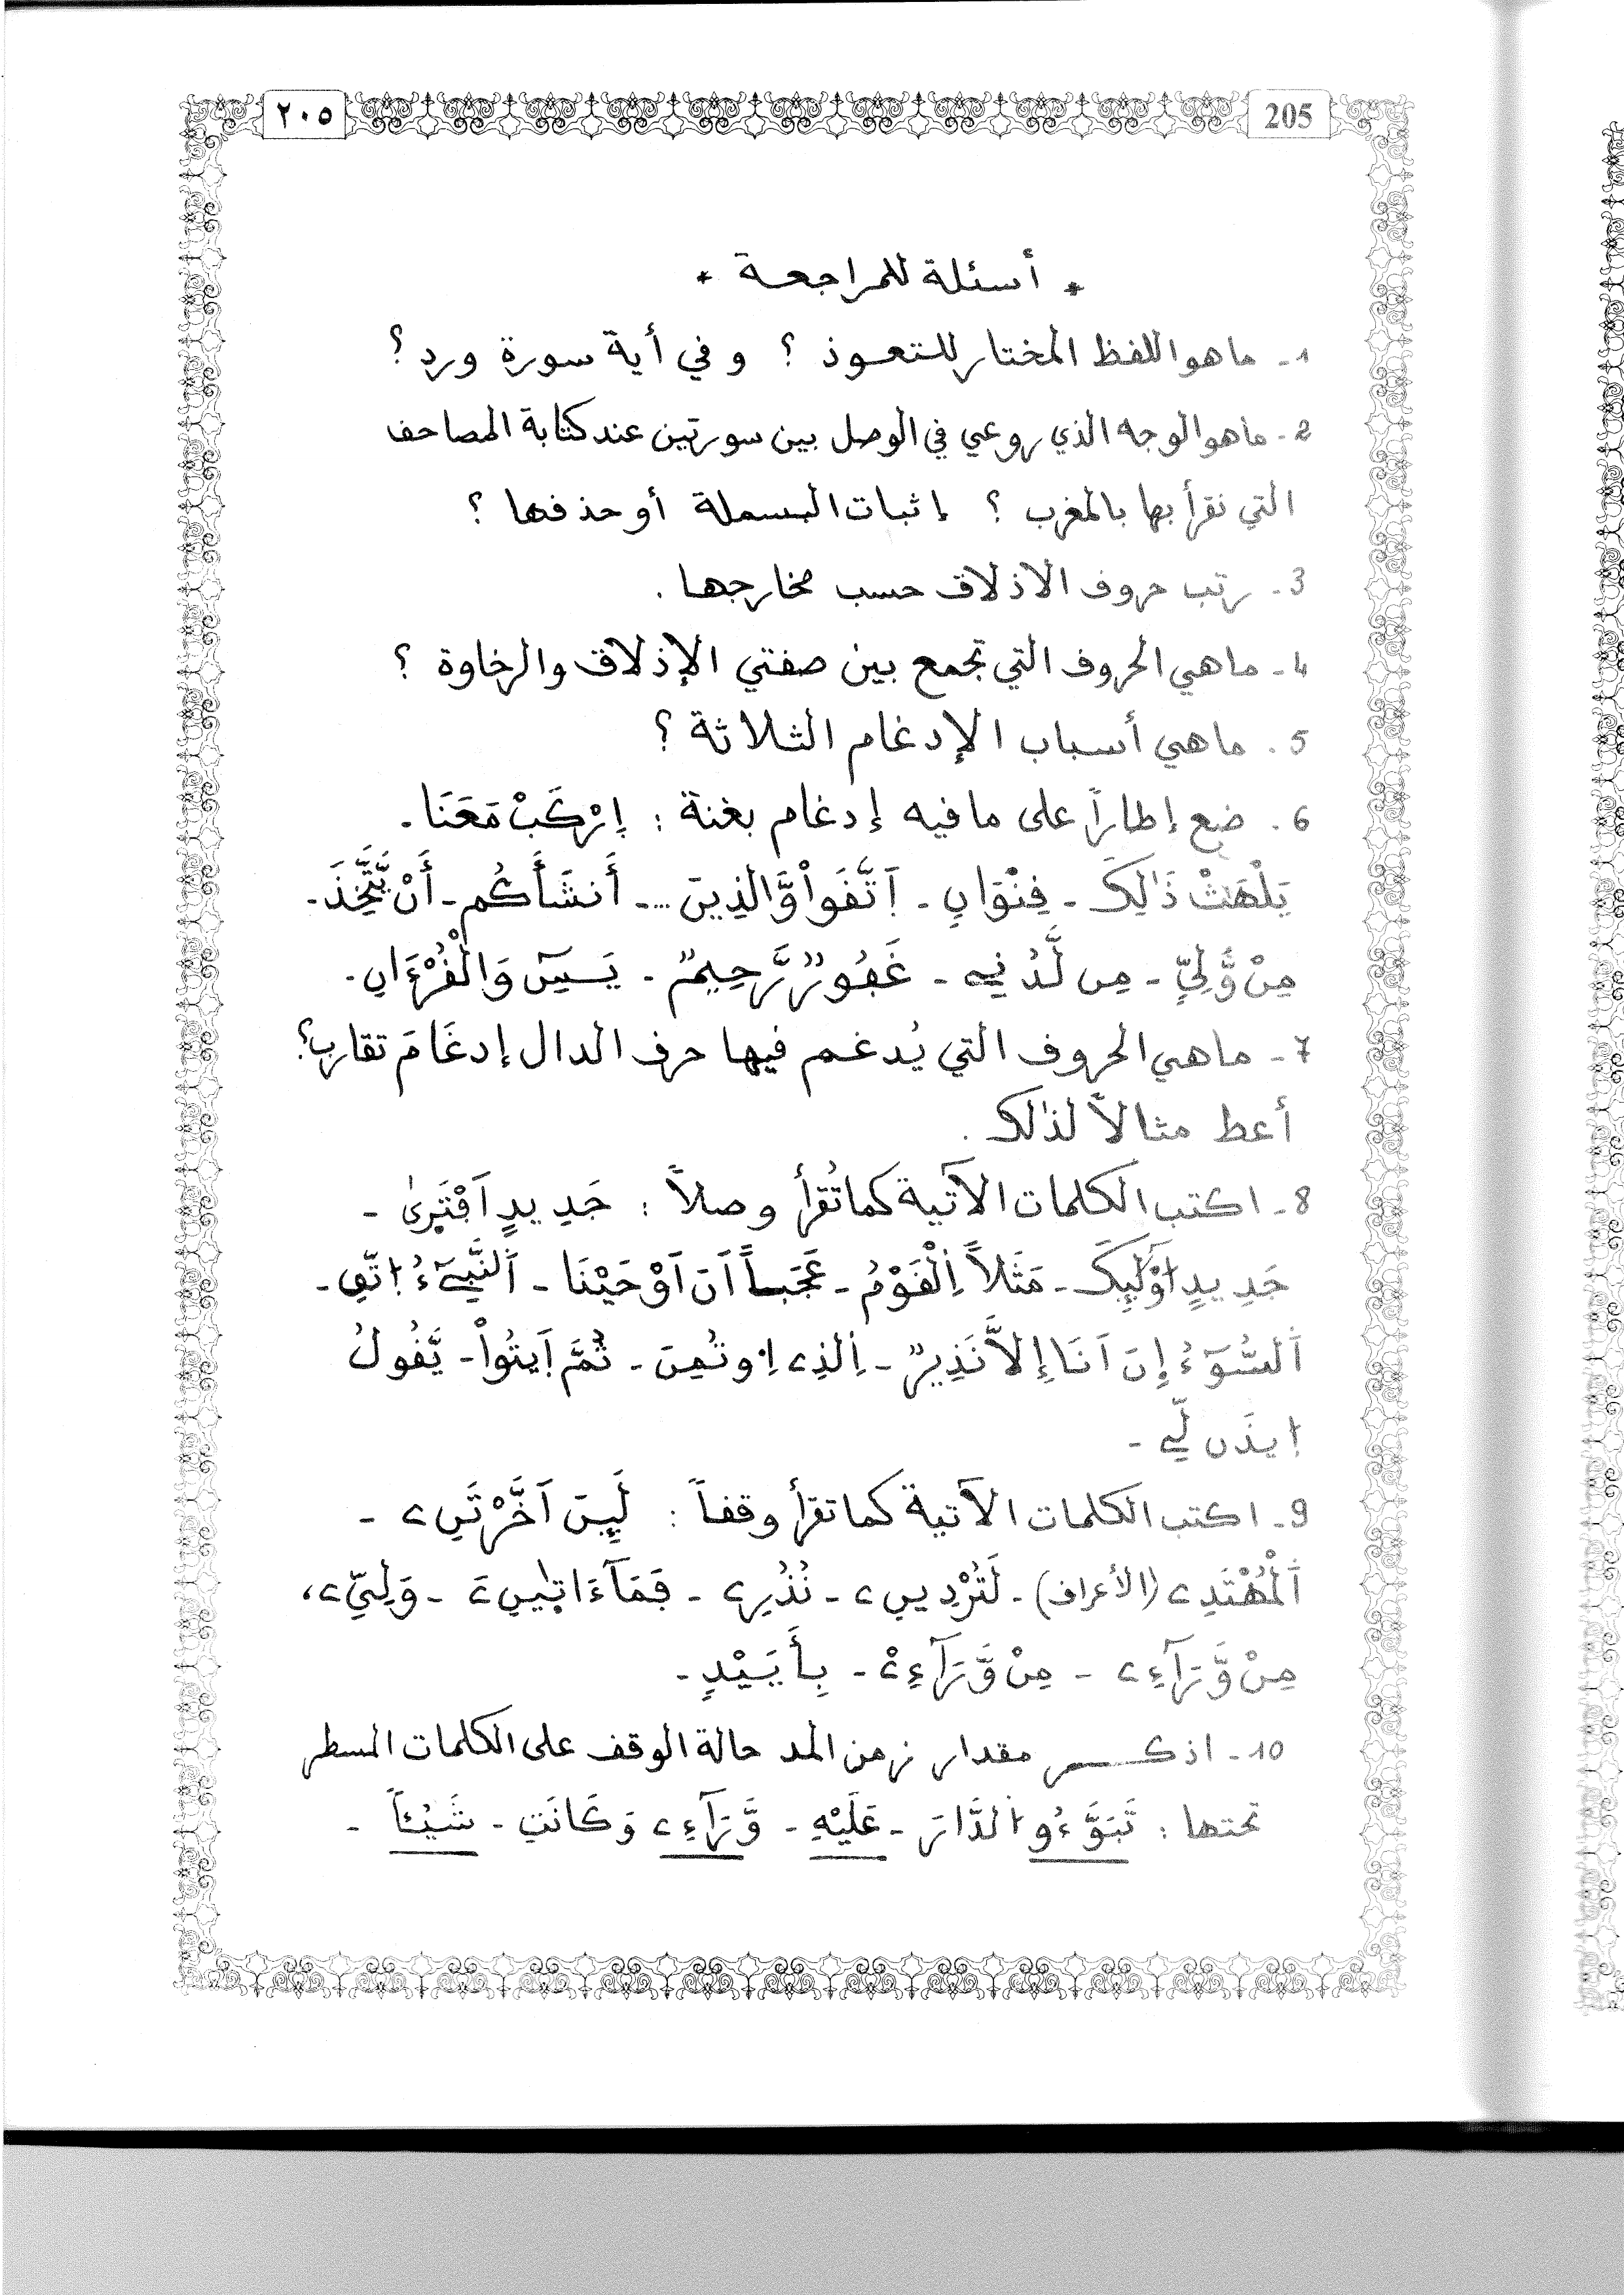 ٢٠٥
205
* أسئلة للمراجعة *
1- ما هو اللفظ المختار للتعوذ ؟ و في أية سورة ورد ؟
2- ما هو الوجه الذي روعي في الوصل بين سورتين عند كتابة المصاحف
التي نقرأ بها بالمغرب ؟ إثبات البسملة أو حذفها ؟
3- رتب حروف الاذلاق حسب مخارجها .
4- ما هي الحروف التي تجمع بين صفتي الإذلاق والرخاوة ؟
5- ما هي أسباب الإدغام الثلاثة ؟
6- ضع إطاراً على ما فيه إدغام بغنة : اِرْكَبْ مَعَنَا -
يَلْهَثْ ذَٰلِكَ - فِنْوَانٌ - اَ۪تَّفَواْ وَّالذِينَ ... - أَنشَأَكُم - أَنْ يَّتَّخِذَ -
مِنْ وَّلِيٍّ - مِن لَّدُنِّے - غَفُورٌ رَّحِيمٌ - يَسِٓ وَالْفُرْءَانِ -
7- ما هي الحروف التي يُدغم فيها حرف الدال إدغَامَ تقارب؟
أعط مثالاً لذلك .
8- اكتب الكلمات الآتية كما تُقرأ وصلاً : جَدِيدٍ اَفْتَرِىٰ -
جَدِيدٍ اوْلَٰٓئِكَ - مَثَلاً اِ۬لْفَوْمُ - عَجَباً اَنَ اَوْحَيْنَا - اَ۬لنَّبِےٓءُ اِتَّقِ -
اَ۬لسُّوٓءُ إِنَ اَنَا إِلاَّ نَذِيرٌ - اِ۬لذِے اِ۟وتُمِنَ - ثُمَّ اَ۪يتُواْ - يَّفُولُ
اِيذَن لِّے -
9- اكتب الكلمات الآتية كما تقرأ وقفاً : لَئِنَ اَخَّرْتَنِۦ -
اَ۬لْمُهْتَدِے (الأعراف) - لَتُرْدِينِۦ - نُذُرِۦ - فَمَآ ءَاتٜيٰنِۦَ - وَلِيِّۦَ ،
مِنْ وَّرَآءِۦ - مِنْ وَّرَآءِےْ - بِأَيَيْدٍ -
10- اذكـــر مقدار زمن المد حالة الوقف على الكلمات المسطر
تحتها : تَبَوَّءُو اُ۬لدَّارَ - عَلَيْهِ - وَّرَآءِے وَكَانَتِ - شَيْـٔاً -